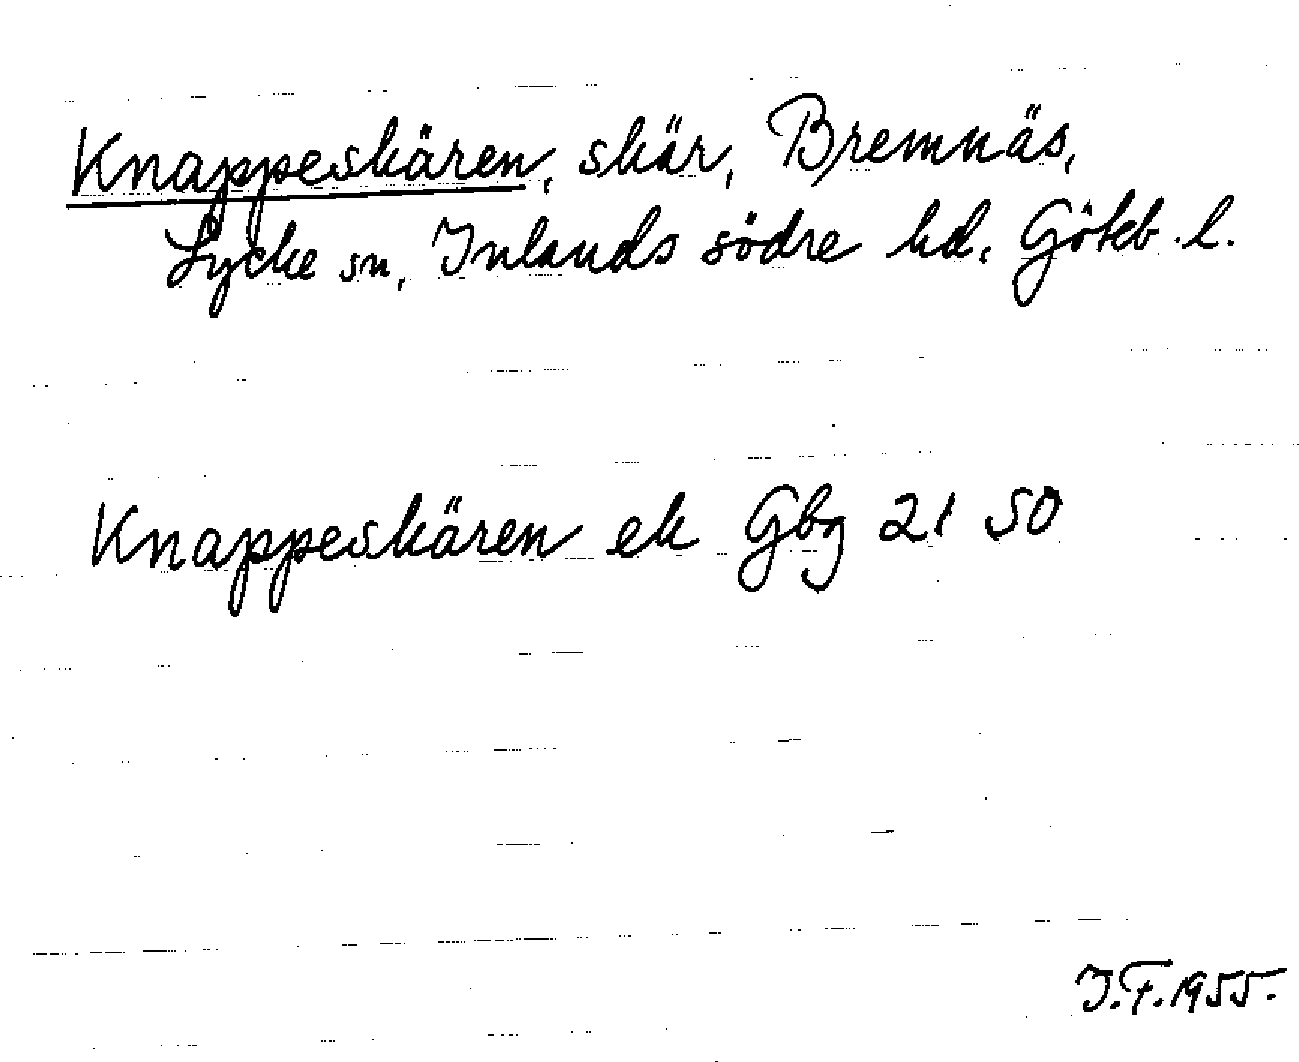 Knappeskären, skär, Bremnäs,
Lycke sn, Inlands södre hd, Götb. l.
Knappeskären ek Gbg 21 SO
J.F. 1955.